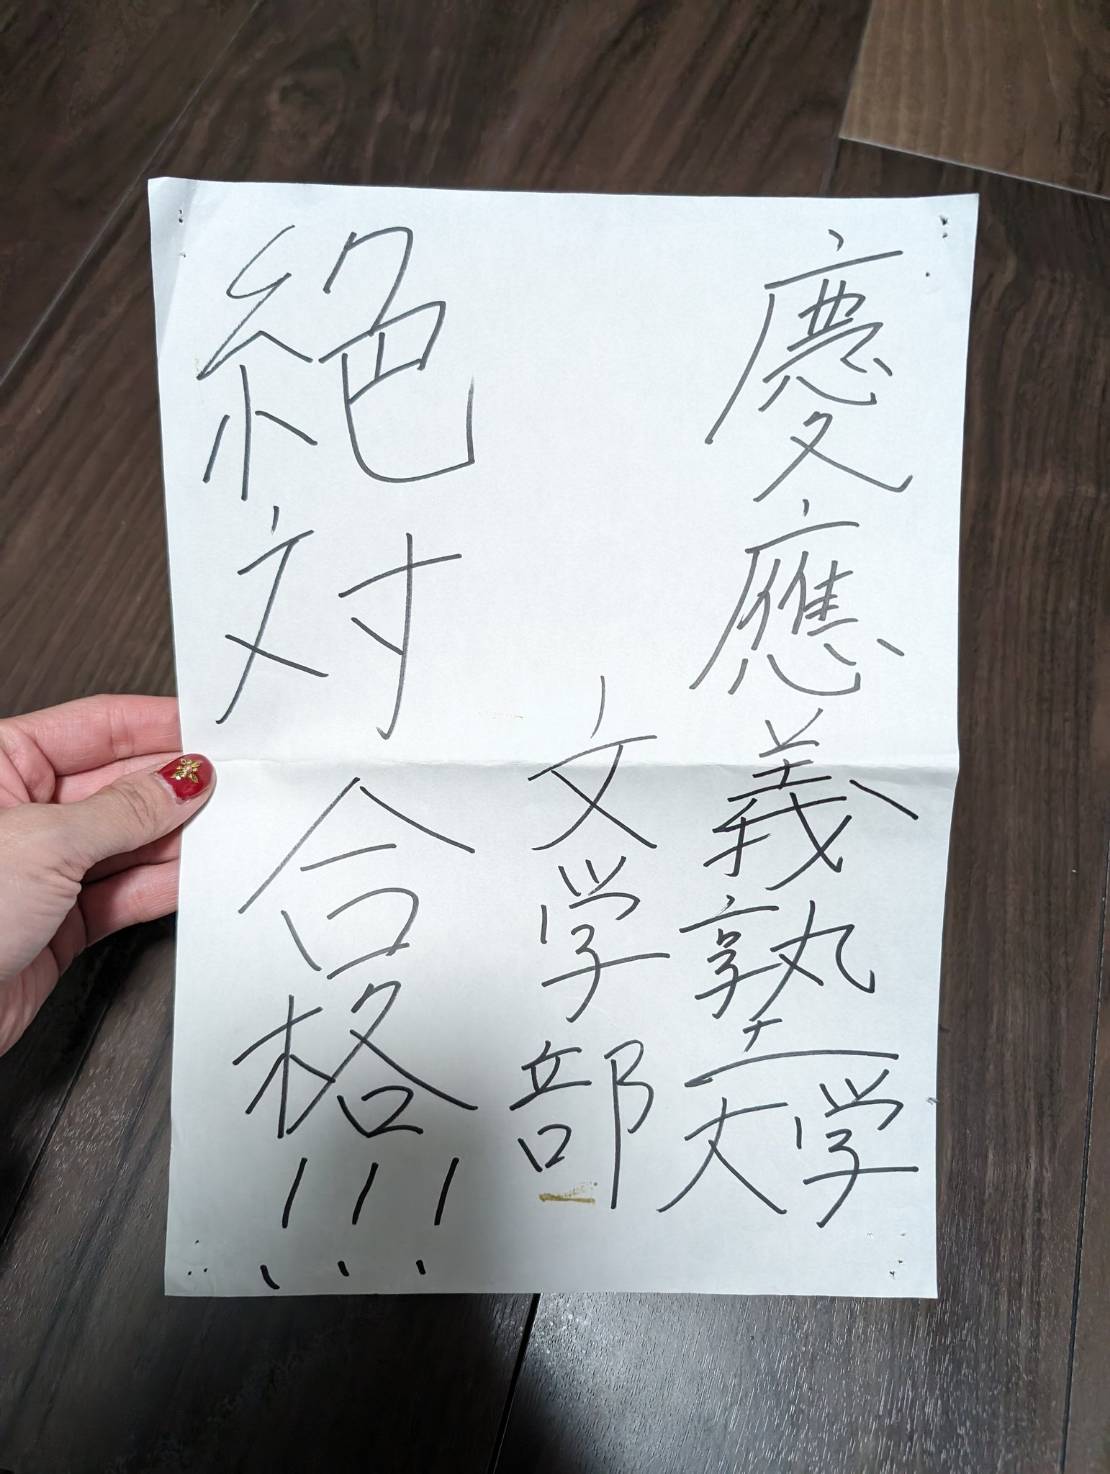 慶應義塾大学
文学部
絶対合格!!!